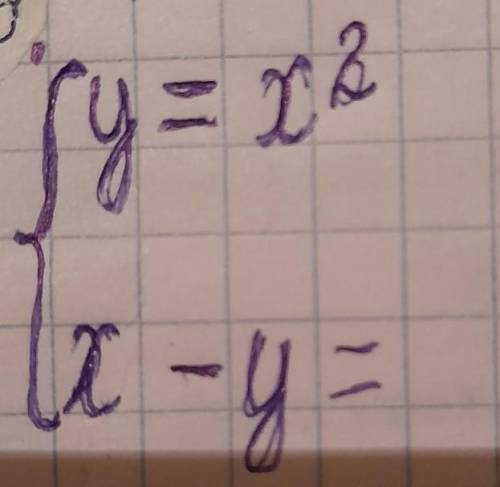 y = x²
x - y =